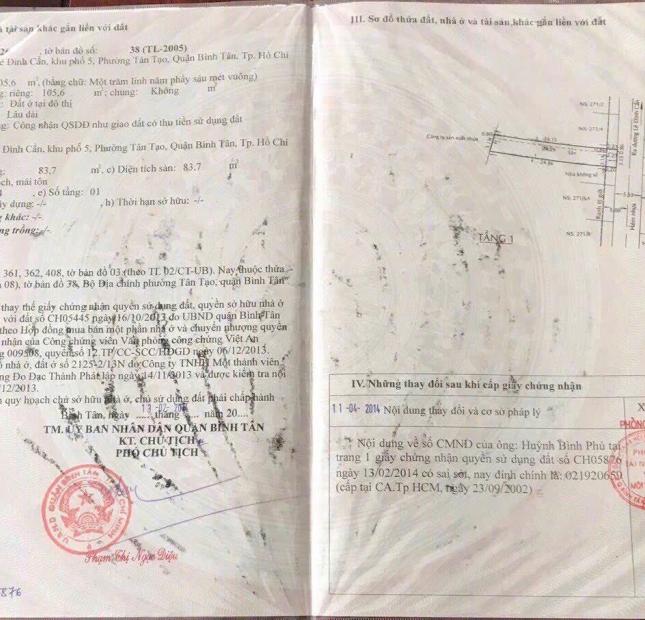 à tài sản khác gắn liền với đất
, tờ bản đồ số: 38 (TL-2005)
Đình Cẩn, khu phố 5, Phường Tân Tạo, Quận Bình Tân, Tp. Hồ Chí
05,6 m², (bằng chữ: Một trăm linh năm phẩy sáu mét vuông)
ng: riêng: 105,6 m²; chung: Không m²
: Đất ở tại đô thị
Lâu dài
ng: Công nhận QSDĐ như giao đất có thu tiền sử dụng đất
Đình Cẩn, khu phố 5, Phường Tân Tạo, Quận Bình Tân, Tp. Hồ Chí
: 83,7 m², c) Diện tích sàn: 83.7 m²
ch, mái tôn
, e) Số tầng: 01
ây dựng: -/- , h) Thời hạn sở hữu: -/-
g khác: -/-
ng trồng: -/-
361, 362, 408, tờ bản đồ 03 (theo TL 02/CT-UB). Nay thuộc thửa
08), tờ bản đồ 38, Bộ Địa chính phường Tân Tạo, quận Bình Tân
thay thế giấy chứng nhận quyền sử dụng đất, quyền sở hữu nhà ở
với đất số CH05445 ngày 16/10/2013 do UBND quận Bình Tân
theo Hợp đồng mua bán một phần nhà ở và chuyển nhượng quyền
nhận của Công chứng viên Văn phòng công chứng Việt An
009508, quyển số 12.TP/CC-SCC/HĐGD ngày 06/12/2013.
nhà ở, đất ở số 2125-2/13N do Công ty TNHH Một thành viên
ng Đo Đạc Thành Phát lập ngày 14/11/2013 và được kiểm tra nội
/12/2013.
n quy hoạch chủ sở hữu nhà ở, chủ sử dụng đất phải chấp hành
Bình Tân, ngày ..... tháng ..... năm 20....
13-02-
TM. ỦY BAN NHÂN DÂN QUẬN BÌNH TÂN
KT. CHỦ TỊCH
PHÓ CHỦ TỊCH
Phạm Thị Ngọc Diệu
876
III. Sơ đồ thửa đất, nhà ở và tài sản khác gắn liền với đất
NS: 271/2
Công ty sản xuất nhựa
Nhà không số
Ranh lộ giới
Hẻm nhựa
Ra đường Lê Đình Cẩn
TẦNG 1
IV. Những thay đổi sau khi cấp giấy chứng nhận
11-04-2014 Nội dung thay đổi và cơ sở pháp lý
Nội dung về số CMND của ông: Huỳnh Bình Phú tại
trang 1 giấy chứng nhận quyền sử dụng đất số CH05876
ngày 13/02/2014 có sai sót, nay đính chính là: 021920659
(cấp tại CA.Tp HCM, ngày 23/09/2002)